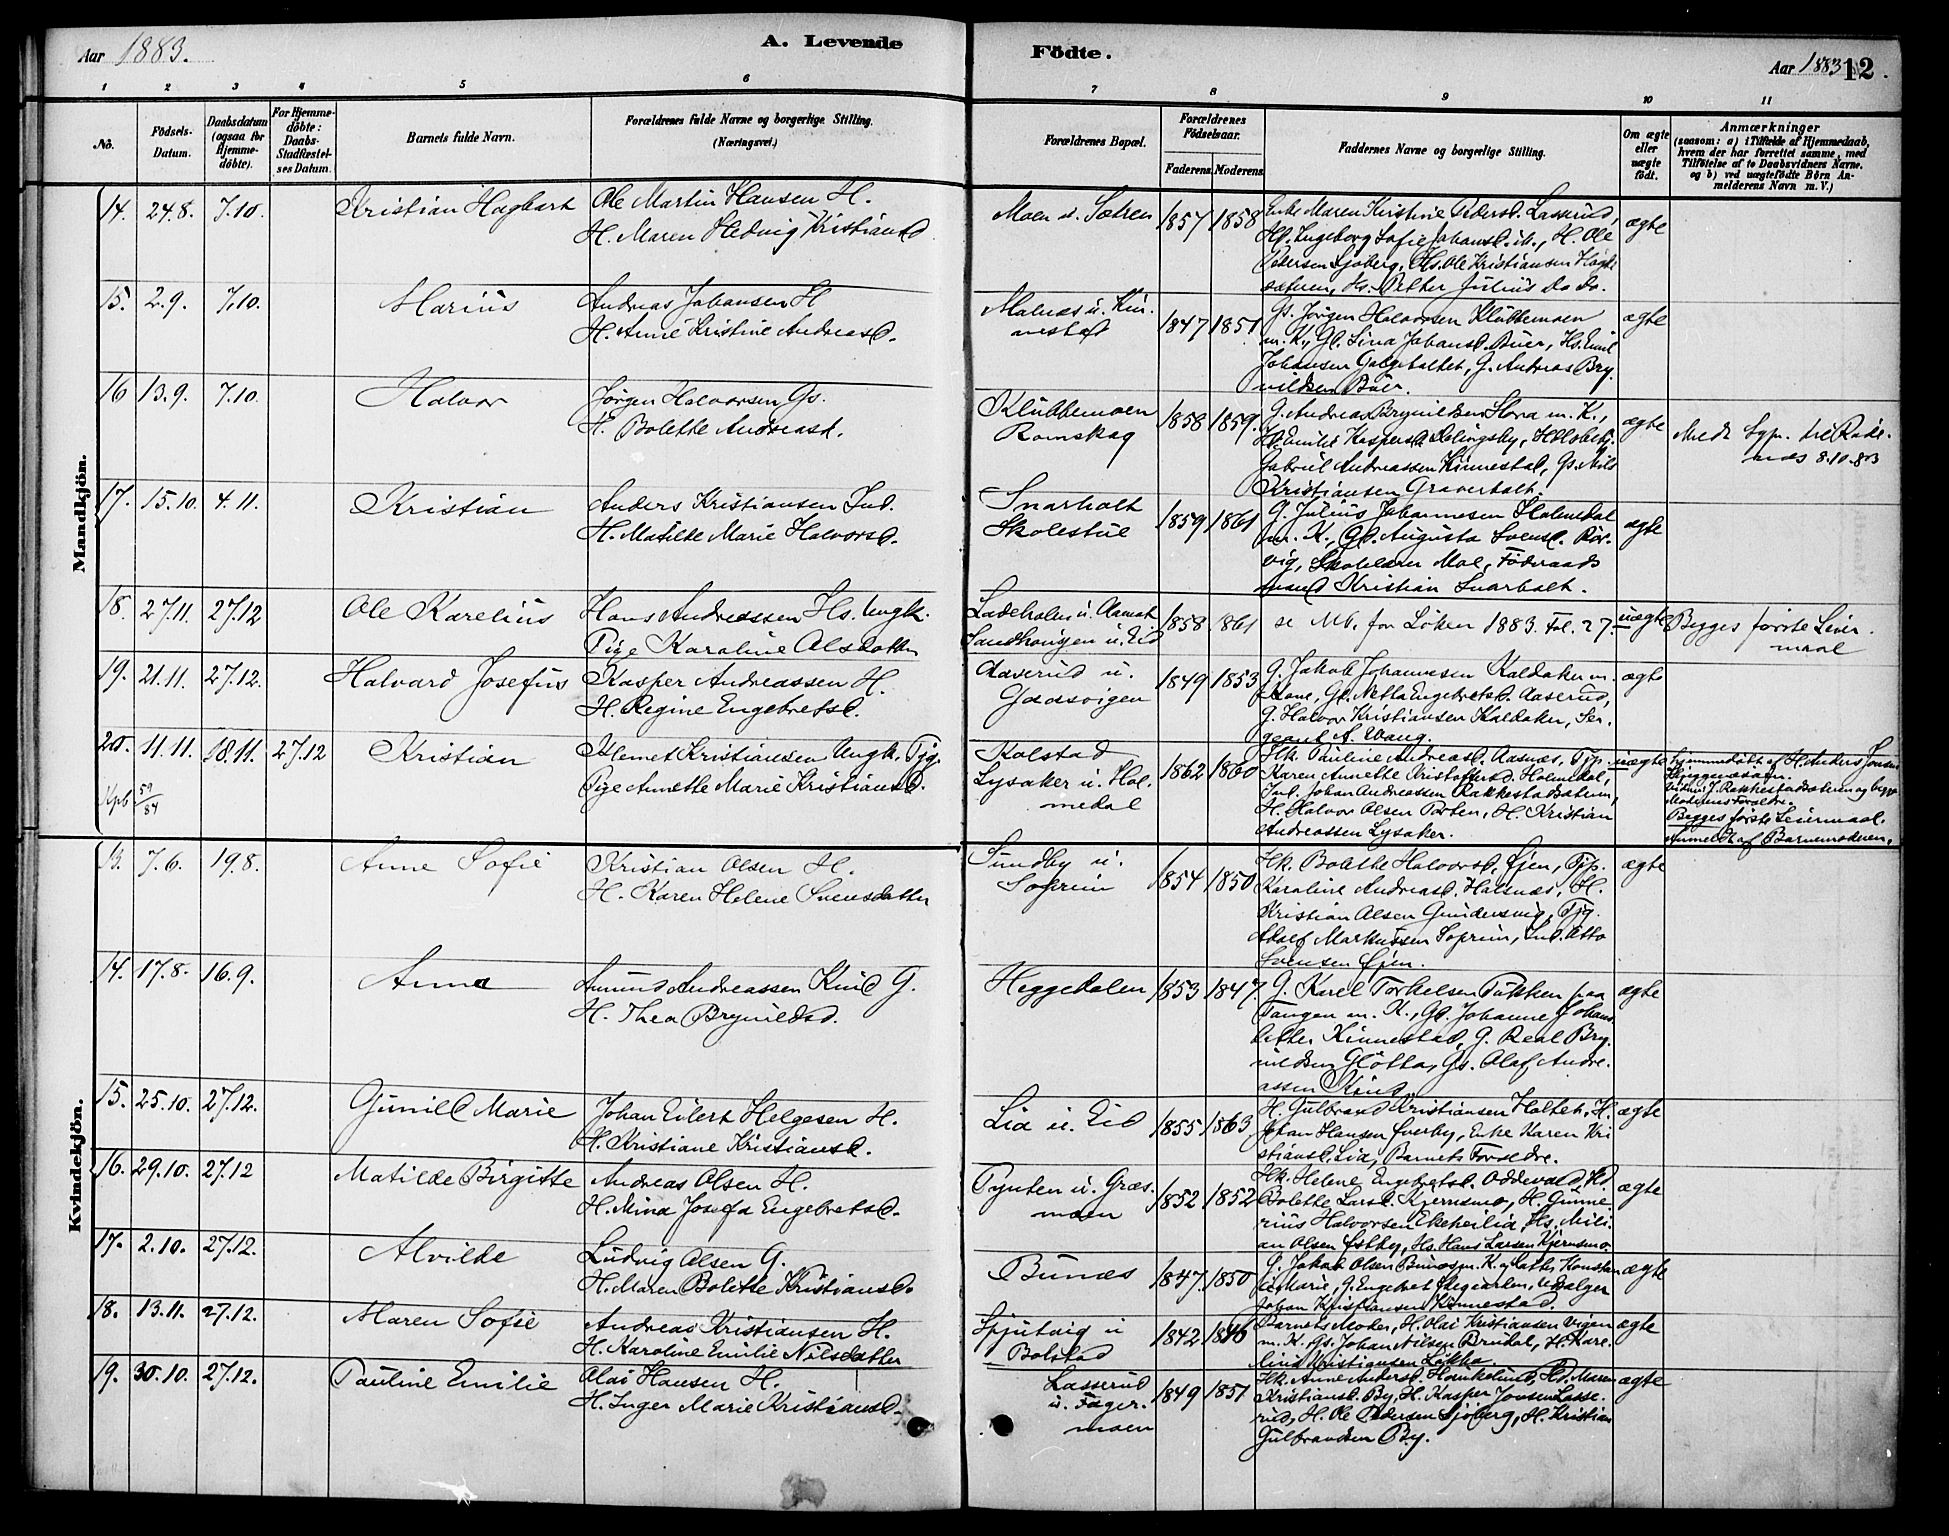 Aar 1883.
A. Levende
Födte.
Aar 1883
12.
1 2 3 4 5 6 7 8 9 10 11
No.
Födsels-Datum.
Daabsdatum (ogsaa for Hjemme-döbte).
For Hjemme-döbte: Daabs-Stadfæstel-ses Datum.
Barnets fulde Navn.
Forældrenes fulde Navne og borgerlige Stilling.
(Næringsvei.)
Forældrenes Bopæl.
Forældrenes Födselsaar.
Faderens. Moderens.
Faddernes Navne og borgerlige Stilling.
Om ægte eller uægte födt.
Anmærkninger
(saasom: a) i Tilfælde af Hjemmedaab,
hvem der har forrettet samme, med
Tilföielse af to Daabsvidners Navne,
og b) ved uægtefödte Börn An-
melderens Navn m. V.)
Mandkjön.
14. 24.8. 7.10. Kristian Hagbart
Ole Martin Hansen H.
H. Maren Hedvig Kristiansd.
Moen u. Sætren
1857 1858
Enke Maren Kirstine Pedersd. Lasserud,
Ole
Pedersen Sjöberg, Hs. Ole Kristiansen
Hs. Petter Julius do do.
ægte
15. 2.9. 7.10. Marius
Andreas Johansen H
H. Anne Kristine Andreasd.
Malnæs u. Kin-
nestad
1847 1851
Gs. Jörgen Halvorsen Klubbemoen
m. K., Gd. Lina Johansd. Buer, Hs. Emil
Johansen Galgeholtet, G. Andreas Bry-
nildsen Buer.
ægte
16 13.9. 7.10. Halvor
Jörgen Halvorsen Gs.
H. Bolette Andreasd.
Klubbemoen
Romskog
1858 1859.
G. Andreas Brynildsen Hora m. K.,
Gabriel Andreassen Kinnestad, Gs. Nils
Kristiansen Graverholt.
ægte
Medt Syn. til Röde-
næs 8.10.83
17. 15.10. 4.11. Kristian
Anders Kristiansen Ind.
H. Matilde Marie Halvorsd.
Snarholt
Skolestue
1859 1861
G. Julius Johannesen Holmedal
m. K., Gd. Augusta Svensd. Rör-
vig, Skolelærer Moe, Föderaads
mand Kristian Snarholt.
ægte
18. 27.11. 27.12 Ole Karelius
Hans Andreassen Hs. Ungk.
Pige Karoline Olsdatter
Ladeholm u. Aamot
Sandhaugen u. Eid
1858 1861
se Mb. for Löken 1883. Fol. 27.
uægte
Begges förste Leier-
maal
19. 21.11. 27.12. Halvard Josefus
Kasper Andreassen H.
H. Regine Engebretsd.
Aaserud u.
Gaasvigen
1849 1853
G. Jakob Johannesen Kaldaker m.
Kone, Gd. Netta Engebretsd. Aaserud,
G. Halvor Kristiansen Kaldaker, Ser-
geant A. Wang.
ægte
20. 11.11. 18.11. 27.12 Kristian
Klemet Kristiansen Ungk. Tjg.
Pige Annette Marie Kristiansd.
Kolstad
Lysaker u. Hol-
medal
1862 1860
Hk. Pauline Andreasd. Aasnæs, Tjp.
Karen Annette Kristoffersd. Holmedal,
Ind. Johan Andreassen Rakkestadsæteren,
H. Halvor Olsen Torten, H. Kristian
Andreassen Lysaker.
uægte
Hjemmedöbt af H. Anders Jonsen
Moderens Forældre.
Begges förste Leiermaal.
Anmeldt af Barnemoderen.
59/84
Kvindekjön.
13. 7.6. 19.8. Anne Sofie
Kristian Olsen H.
H. Karen Helene Svensdatter
Sundby u.
Soprim
1854 1850
Hk. Bolette Halvorsd. Öien, Tjp.
Karoline Andreasd. Halsnæs, H.
Kristian Olsen Gundersvig, Tjg.
Adolf Markussen Soprim, Ind. Otto
Svensen Öien.
ægte
14. 17.8. 16.9. Anna
Amund Andreassen Kind G.
H. Thea Brynildsd.
Heggedalen
1853 1847.
G. Karel Torkelsen Tukken paa
Tangen m. K., Gd. Johanne Johans-
datter Kinnestad, G. Real Bry-
nildsen Glötta, Gs. Olaf Andre-
assen Kind.
ægte
15. 25.10. 27.12. Gunild Marie
Johan Eilert Helgesen H.
H. Kristiane Kristiansd.
Lia u. Eid
1855 1863
H. Gulbrand Kristiansen Holtet, H.
Johan Hansen Överby, Enke Karen Kri
stiansd. Lia, Barnets Forældre.
ægte
16. 29.10. 27.12 Matilde Birgitte
Andreas Olsen H.
H. Mina Josefa Engebretsd.
Tynten u. Græs-
moen
1852 1852
Hk. Helene Engebretsd. Oddevald, Hd.
Bolette Larsd. Kjernsmo, H. Gunne-
rius Halvorsen Ekeheilia, Hs. Mili-
an Olsen Östby, Hs. Hans Larsen Kjernsmo.
ægte
17. 2.10. 27.12. Alvilde
Ludvig Olsen G.
H. Maren Bolette Kristiansd.
Bunæs
1847. 1850
G. Jakob Olsen Bunæs m. K. og datter Konstan
se Marie, G. Engebret
Johan Kristiansen Kinnestad.
ægte
18. 13.11. 27.12. Maren Sofie
Andreas Kristiansen H.
H. Karoline Emilie Nilsdatter
Spjutvig u
Bolstad
1842 1846
Barnets Moder, H. Olai Kristiansen Vigen
m. K. Gs. Johan Nilsen Brudal, H. Kare-
lius Kristiansen Lökka.
ægte
19. 30.10. 27.12. Pauline Emilie
Olai Hansen H.
H. Inger Marie Kristiansd.
Lasserud
u. Fager-
moen
1849 1851
Hk. Anne Andersd. Hornkolmo, Hd. Maren
Kristiansd. By, H. Kasper Jonsen Lasse-
rud, H. Ole Pedersen Sjöberg, H. Kristian
Gulbrandsen By.
ægte